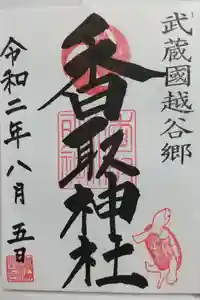 武蔵國越谷郷
香取神社
令和二年八月五日